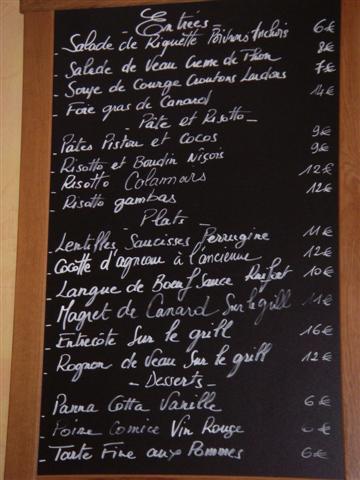 - Entrées -
- Salade de Riquette Poivrons Anchois 6€
- Salade de Veau Creme de Thon 8€
- Soupe de Courge Croutons Lardons 7€
- Foie gras de Canard 14€
- Pâte et Risotto -
- Pâtes Pistou et Cocos 9€
- Risotto et Boudin Niçois 9€
- Risotto Calamars 12€
- Risotto gambas 12€
- Plats -
- Lentilles, Saucisses Perrugine 11€
- Cocotte d'agneau à l'ancienne 12€
- Langue de Boeuf Sauce Raifort 10€
- Magret de Canard Sur le grill 11€
- Entrecôte Sur le grill 16€
- Rognon de Veau Sur le grill 12€
- Desserts -
- Panna Cotta Vanille 6€
- Poire Comice Vin Rouge €
- Tarte Fine aux Pommes 6€